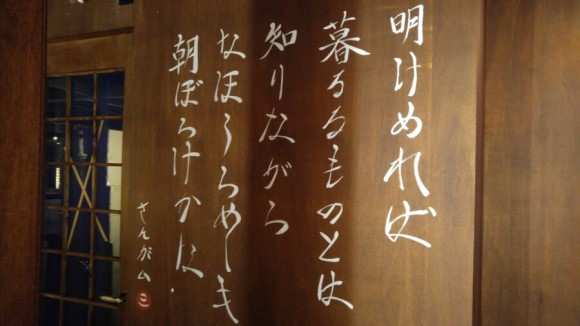 明けぬれば
暮るるものとは
知りながら
なほうらめしき
朝ぼらけかな.